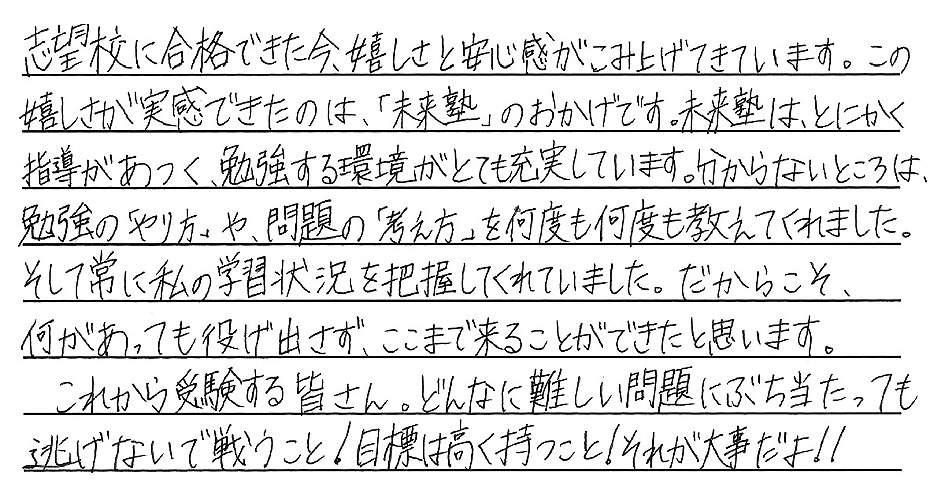 志望校に合格できた今、嬉しさと安心感がこみ上げてきています。この
嬉しさが実感できたのは、「未来塾」のおかげです。未来塾は、とにかく
指導があつく、勉強する環境がとても充実しています。分からないところは、
勉強の「やり方」や、問題の「考え方」を何度も何度も教えてくれました。
そして常に私の学習状況を把握してくれていました。だからこそ、
何があっても役げ出さず、ここまで来ることができたと思います。
これから受験する皆さん。どんなに難しい問題にぶち当たっても
逃げないで戦うこと!目標は高く持つこと!それが大事だよ!!